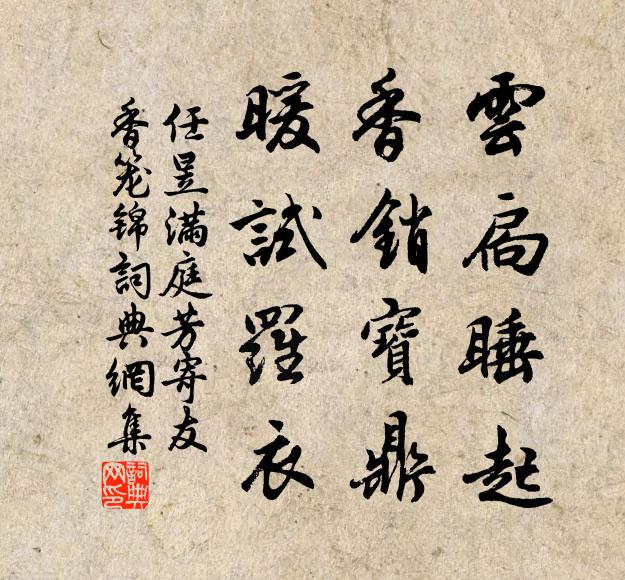 雲扃睡起
香銷寶鼎
暖試羅衣
任昱滿庭芳寄友
香笼錦詞典網集
詞典
网印